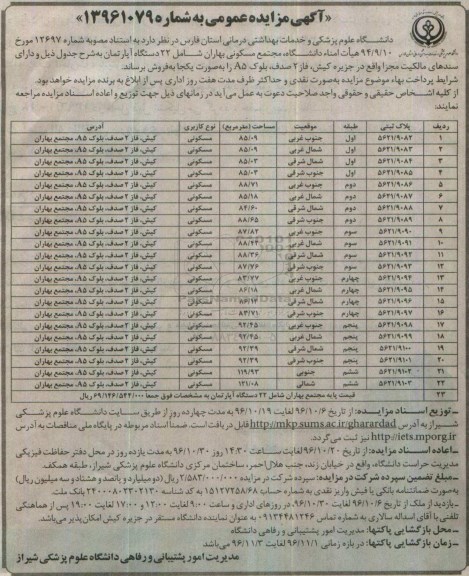 «آگهی مزایده عمومی به شماره ۱۳۹۶۱۰۷۹»
دانشگاه علوم پزشکی و خدمات بهداشتی درمانی استان فارس در نظر دارد به استناد مصوبه شماره ۱۲۶۹۷ مورخ
۹۴/۹/۱۰ هیأت امناء دانشگاه، مجتمع مسکونی بهاران شامل ۲۲ دستگاه آپارتمان به شرح جدول ذیل و دارای
سندهای مالکیت مجزا واقع در جزیره کیش، فاز ۲ صدف، بلوک A۵ را به صورت یکجا به فروش برساند.
شرایط پرداخت بهاء موضوع مزایده به صورت نقدی و حداکثر ظرف مدت هفت روز اداری پس از ابلاغ به برنده مزایده خواهد بود.
از کلیه اشخاص حقیقی و حقوقی واجد صلاحیت دعوت به عمل می‌آید در زمانهای ذیل جهت توزیع و اعاده اسناد مزایده مراجعه
نمایند:
ردیف پلاک ثبتی طبقه موقعیت مساحت (مترمربع) نوع کاربری آدرس
۱ ۵۶۲۱/۹۰۸۲ اول جنوب غربی ۸۵/۰۹ مسکونی کیش، فاز ۲ صدف، بلوک A۵، مجتمع بهاران
۲ ۵۶۲۱/۹۰۸۳ اول شمال غربی ۸۵/۰۹ مسکونی کیش، فاز ۲ صدف، بلوک A۵، مجتمع بهاران
۳ ۵۶۲۱/۹۰۸۴ اول شمال شرقی ۸۵/۰۳ مسکونی کیش، فاز ۲ صدف، بلوک A۵، مجتمع بهاران
۴ ۵۶۲۱/۹۰۸۵ اول جنوب شرقی ۸۵/۰۳ مسکونی کیش، فاز ۲ صدف، بلوک A۵، مجتمع بهاران
۵ ۵۶۲۱/۹۰۸۶ دوم جنوب غربی ۸۸/۷۱ مسکونی کیش، فاز ۲ صدف، بلوک A۵، مجتمع بهاران
۶ ۵۶۲۱/۹۰۸۷ دوم شمال غربی ۸۵/۱۸ مسکونی کیش، فاز ۲ صدف، بلوک A۵، مجتمع بهاران
۷ ۵۶۲۱/۹۰۸۸ دوم شمال شرقی ۸۴/۶۰ مسکونی کیش، فاز ۲ صدف، بلوک A۵، مجتمع بهاران
۸ ۵۶۲۱/۹۰۸۹ دوم جنوب شرقی ۸۸/۶۵ مسکونی کیش، فاز ۲ صدف، بلوک A۵، مجتمع بهاران
۹ ۵۶۲۱/۹۰۹۰ سوم جنوب غربی ۸۷/۸۲ مسکونی کیش، فاز ۲ صدف، بلوک A۵، مجتمع بهاران
۱۰ ۵۶۲۱/۹۰۹۱ سوم شمال غربی مسکونی کیش، فاز ۲ صدف، بلوک A۵، مجتمع بهاران
۱۱ ۵۶۲۱/۹۰۹۲ سوم شمال شرقی ۸۸/۳۶ مسکونی کیش، فاز ۲ صدف، بلوک A۵، مجتمع بهاران
۱۲ ۵۶۲۱/۹۰۹۳ سوم جنوب شرقی ۸۷/۷۶ مسکونی کیش، فاز ۲ صدف، بلوک A۵، مجتمع بهاران
۱۳ ۵۶۲۱/۹۰۹۴ چهارم جنوب غربی ۸۳/۷۷ مسکونی کیش، فاز ۲ صدف، بلوک A۵، مجتمع بهاران
۱۴ ۵۶۲۱/۹۰۹۵ چهارم شمال غربی ۸۶/۱۸ مسکونی کیش، فاز ۲ صدف، بلوک A۵، مجتمع بهاران
۱۵ ۵۶۲۱/۹۰۹۶ چهارم شمال شرقی مسکونی کیش، فاز ۲ صدف، بلوک A۵، مجتمع بهاران
۱۶ ۵۶۲۱/۹۰۹۷ چهارم جنوب شرقی ۸۳/۷۱ مسکونی کیش، فاز ۲ صدف، بلوک A۵، مجتمع بهاران
۱۷ ۵۶۲۱/۹۰۹۸ پنجم جنوب غربی ۹۲/۴۵ مسکونی کیش، فاز ۲ صدف، بلوک A۵، مجتمع بهاران
۱۸ ۵۶۲۱/۹۰۹۹ پنجم شمال غربی ۹۲/۴۵ مسکونی کیش، فاز ۲ صدف، بلوک A۵، مجتمع بهاران
۱۹ ۵۶۲۱/۹۱۰۰ پنجم شمال شرقی ۹۲/۳۹ مسکونی کیش، فاز ۲ صدف، بلوک A۵، مجتمع بهاران
۲۰ ۵۶۲۱/۹۱۰۱ پنجم جنوب شرقی ۹۲/۳۹ مسکونی کیش، فاز ۲ صدف، بلوک A۵، مجتمع بهاران
۲۱ ۵۶۲۱/۹۱۰۲ ششم جنوبی ۱۱۹/۹۳ مسکونی کیش، فاز ۲ صدف، بلوک A۵، مجتمع بهاران
۲۲ ۵۶۲۱/۹۱۰۳ ششم شمالی ۱۲۱/۰۸ مسکونی کیش، فاز ۲ صدف، بلوک A۵، مجتمع بهاران
۲۳ قیمت پایه مجتمع بهاران شامل ۲۲ دستگاه آپارتمان به مشخصات فوق جمعا ۶۹/۱۴۶/۵۴۲/۰۰۰ ریال
-توزیع اسناد مزایده: از تاریخ ۹۶/۱۰/۶ لغایت ۹۶/۱۰/۱۹ به مدت چهارده روز از طریق سایت دانشگاه علوم پزشکی
شیراز به آدرس http://mkp.sums.ac.ir/gharardad قابل دریافت است. ضمنا اسناد مربوطه در پایگاه ملی مناقصات به آدرس
http://iets.mporg.ir نیز ثبت می‌گردد.
-اعاده اسناد مزایده: از تاریخ ۹۶/۱۰/۲۰ لغایت ساعت ۱۴:۳۰ روز ۹۶/۱۰/۳۰ به مدت یازده روز در محل دفتر حفاظت فیزیکی
مدیریت حراست دانشگاه، واقع در خیابان زند، جنب هلال احمر، ساختمان مرکزی دانشگاه علوم پزشکی شیراز، طبقه همکف
-مبلغ تضمین سپرده شرکت در مزایده: سپرده شرکت در مزایده ۲/۵۸۳/۰۰۰/۰۰۰ ریال (دو میلیارد و پانصد و هشتاد و سه میلیون ریال)
به صورت ضمانتنامه بانکی یا فیش واریز نقدی به شماره حساب ۲۴۰۰۰۸۰۲۳۰۲۱۳۰ شناسه کد ۱۵۱۲۷۲۵۸/۶۸ بانک ملت.
-بازدید از ملک از تاریخ ۹۶/۱۰/۶ لغایت ۹۶/۱۰/۳۰ در روزهای اداری و ساعت ۹:۰۰ لغایت ۱۲:۰۰ و ۱۷:۰۰ لغایت ۱۹:۰۰ پس از هماهنگی
تلفنی با آقای اسداله سالاری به شماره تماس ۰۹۱۳۴۴۸۱۲۴۶ به عنوان نماینده دانشگاه مستقر در جزیره کیش امکان پذیر می‌باشد.
-محل بازگشایی پاکتها: مدیریت امور پشتیبانی و رفاهی دانشگاه
-زمان بازگشایی پاکتها: در بازه زمانی ۹۶/۱۱/۱ لغایت ۹۶/۱۱/۳ می‌باشد.
مدیریت امور پشتیبانی و رفاهی دانشگاه علوم پزشکی شیراز